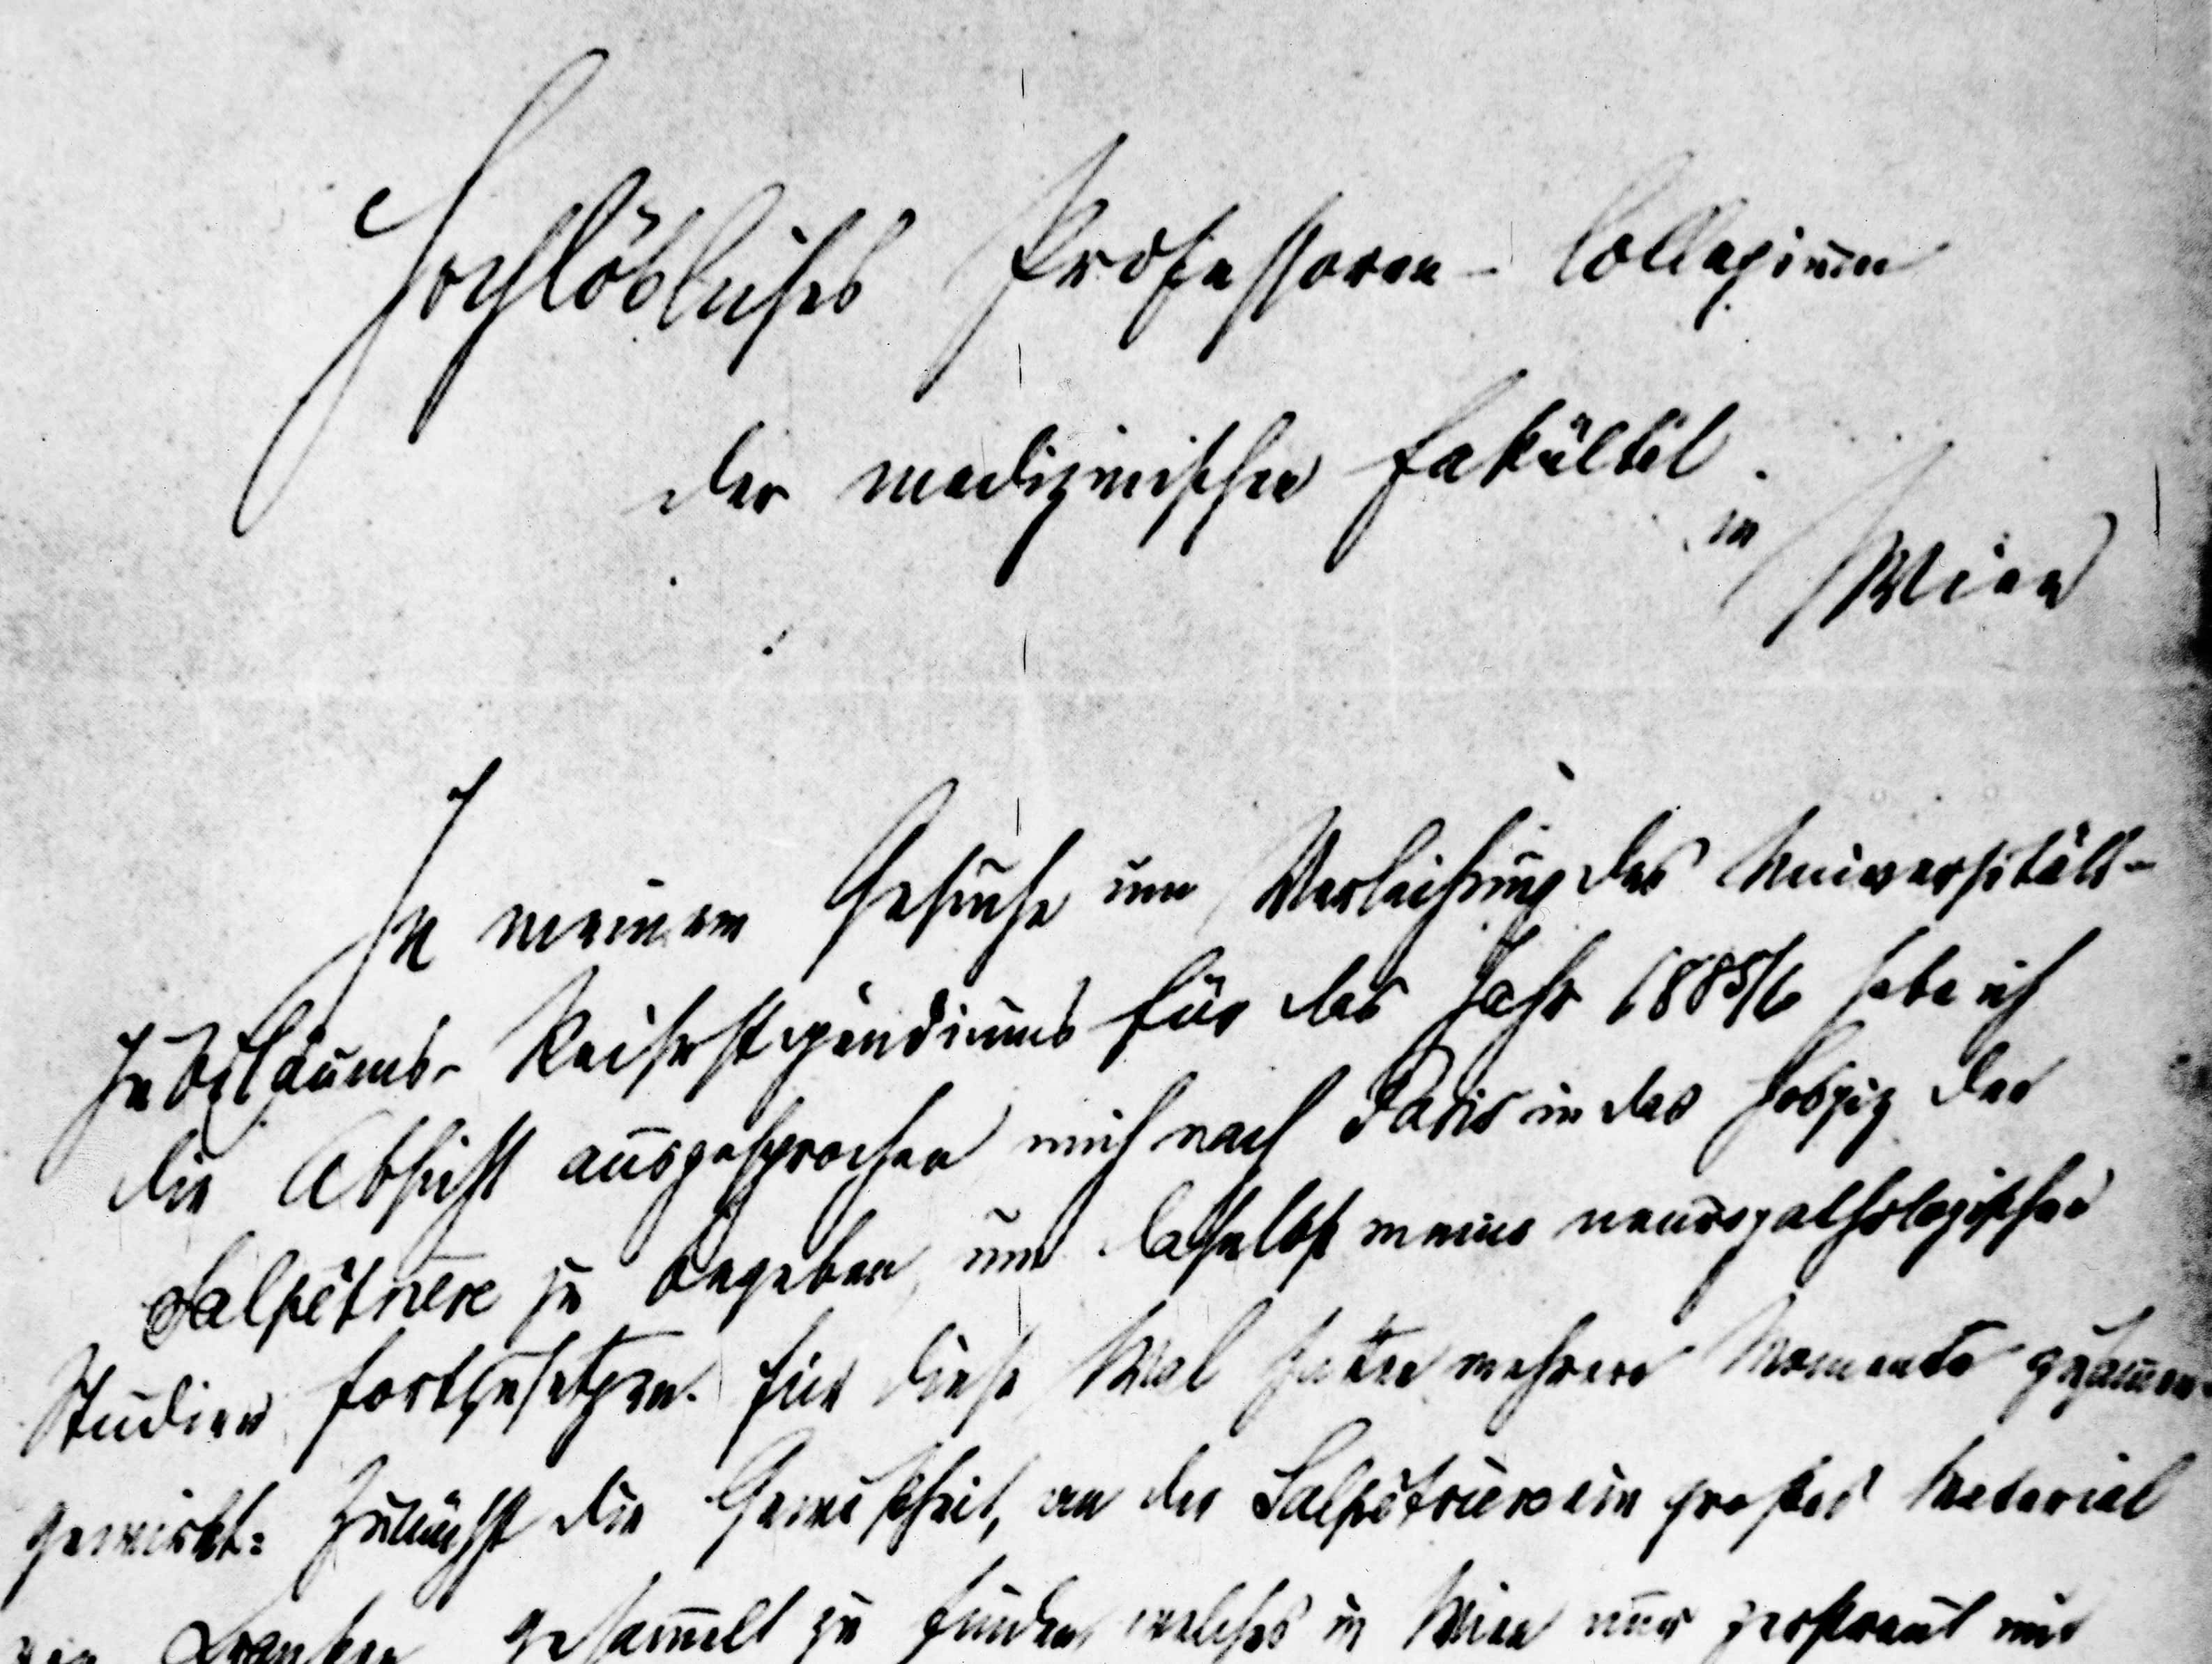 Hochlöbliches Professoren-Collegium
der medizinischen Fakultät
in Wien
In meinem Gesuche um Verleihung des Universitäts-
Jubiläums-Reisestipendiums für das Jahr 1885/6 habe ich
die Absicht ausgesprochen mich nach Paris in das Hospiz der
Salpêtrière zu begeben, um daselbst meine neuropathologischen
Studien fortzusetzen. Für diese Wal hatten mehrere Momente zusamen-
gewirkt: Zunächst die Gewißheit, an der Salpêtrière ein großes Material
von Kranken gesam̄elt zu finden, welches in Wien nur zerstreut und